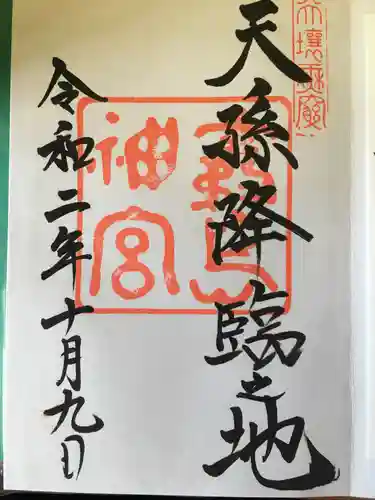 天壤無窮
天孫降臨之地
霧島
神宮
令和二年十月九日